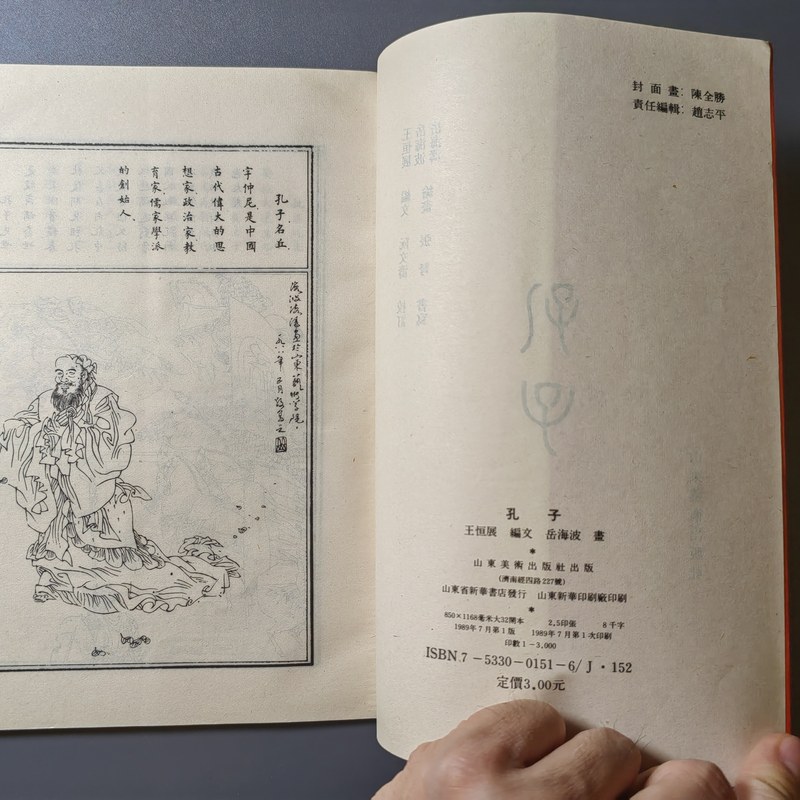 孔子名丘、
字仲尼、是中國
古代偉大的思
想家、政治家、教
育家、儒家學派
的創始人、
封面畫：陳全勝
責任編輯：趙志平
孔 子
王恒展 編文 岳海波 畫
*
山東美術出版社出版
(濟南經四路227號)
山東省新華書店發行 山東新華印刷廠印刷
*
850×1168毫米大32開本 2.5印張 8千字
1989年7月第1版 1989年7月第1次印刷
印數1－3,000
ISBN 7－5330－0151－6/J·152
定價3.00元